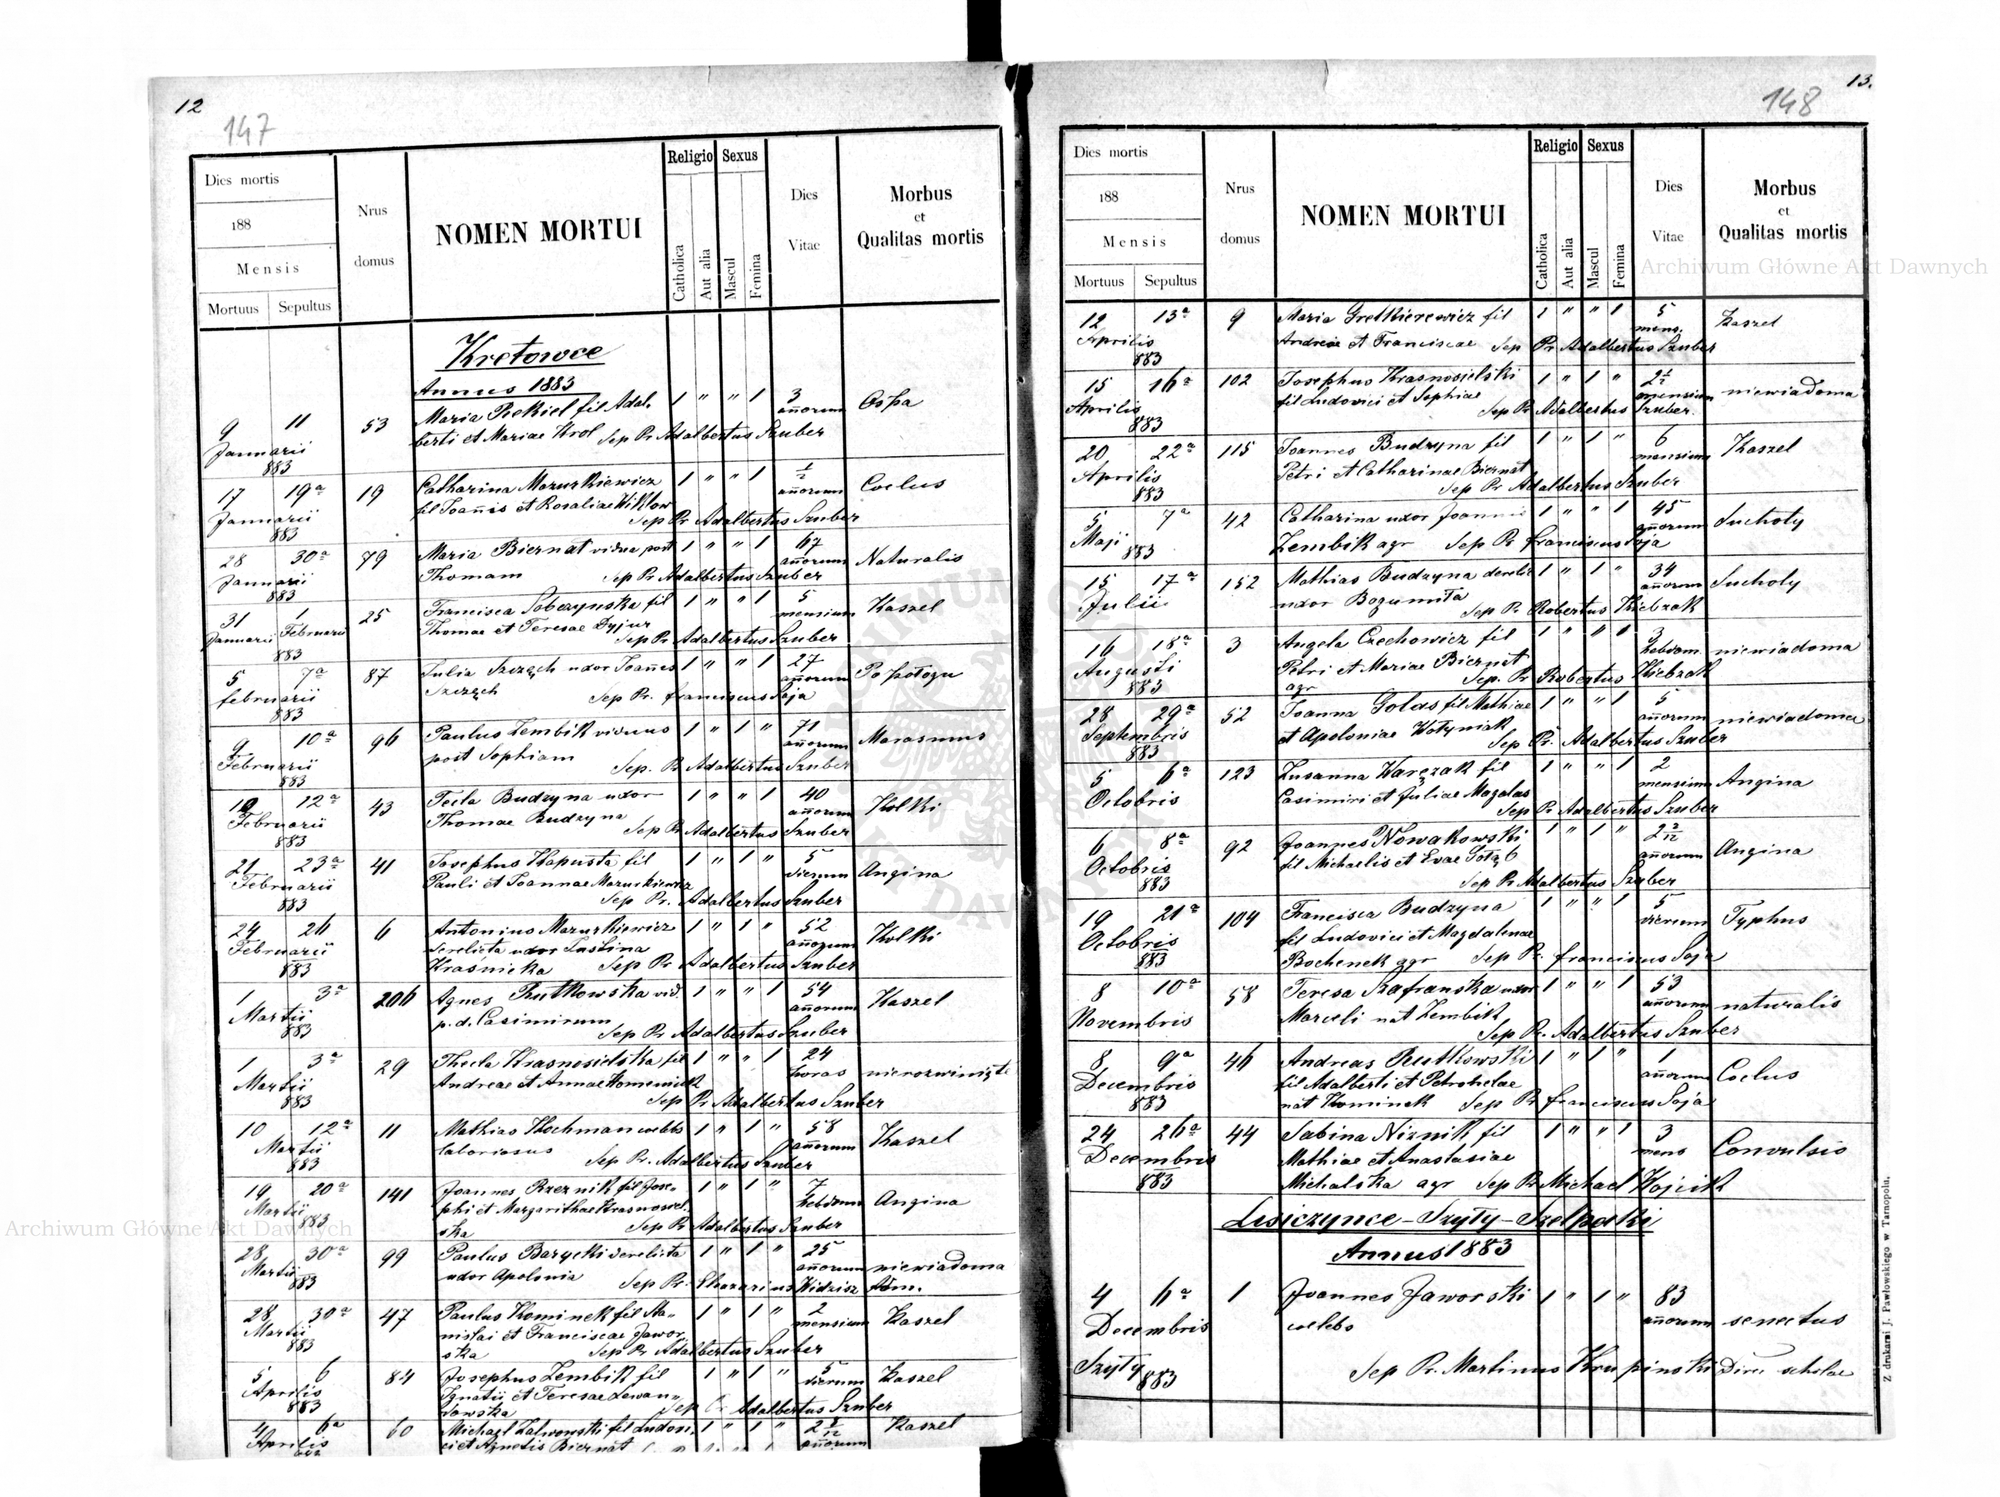 12
147
Dies mortis
188
Mensis
Mortuus Sepultus
Nrus domus
NOMEN MORTUI
Religio Sexus
Catholica Aut alia Mascul Femina
Dies Vitae
Morbus et Qualitas mortis
Kretowce
Annus 1883
9 11 53 Maria Rekiel fil Adal- 1 " " 1 3 Ospa
Januarii berti et Mariae Krol Sep Pr Adalbertus Szuber añorum
883
17 19ª 19 Catharina Mazurkiewicz 1 " " 1 ½ Coclus
Januarii fil Joañis et Rosaliae Sep Pr Adalbertus Szuber añorum
883
28 30ª 79 Maria Biernat vidua post 1 " " 1 67 Naturalis
Januarii Thomam Sep Pr Adalbertus Szuber añorum
883
31 1 25 Francisca Sobczynska fil 1 " " 1 5 Kaszel
Januarii Februarii Thomae et Teresae Dyjur Sep Pr Adalbertus Szuber mensium
883
5 7ª 87 Julia Szczęch uxor Joañes 1 " " 1 27 Po połogu
februarii Szczęch Sep Pr. franciscus Soja añorum
883
9 10ª 96 Paulus Zembik viduus 1 " 1 " 71 Marasmus
Februarii post Sophiam Sep. Pr Adalbertus Szuber añorum
883
12ª 43 Tecla Budzyna uxor 1 " " 1 40 Kolki
Februarii Thomae Budzyna Sep Pr Adalbertus Szuber añorum
883
21 23ª 41 Josephus Kapusta fil 1 " 1 " 5 Angina
Februarii Pauli et Joannae Mazurkiewicz Sep Pr. Adalbertus Szuber dierum
883
24 26 6 Antonius Mazurkiewicz 1 " 1 " 52 Kolki
Februarii derelicta uxor Justina añorum
883 Kraśnicka Sep Pr Adalbertus Szuber
1 3ª 206 Agnes Rutkowska vid. 1 " " 1 54 Kaszel
Martii p. d. Casimirum Sep Pr Adalbertus Szuber añorum
883
1 3ª 29 Thecla Krasnosielska fil 1 " " 1 24 nierozwinięte
Martii Andreae et Annae Sep Pr Adalbertus Szuber horas
883
10 12ª 11 Mathias Kochman coelebs 1 " 1 " 58 Kaszel
Martii laboriosus Sep Pr. Adalbertus Szuber añorum
883
19 20ª 141 Joannes Rzeznik fil Jose- 1 " 1 " 7 Angina
Martii phi et Margarithae Krasnosiel- hebdom
883 ska Sep Pr Adalbertus Szuber
28 30ª 99 Paulus Barycki derelicta 1 " 1 " 25 niewiadoma
Martii uxor Apolonia Sep Pr. Elearius añorum
883
28 30ª 47 Paulus Kominek fil Sta- 1 " 1 " 2 Kaszel
Martii nislai et Franciscae Jawor- mensium
883 ska Sep Pr Adalbertus Szuber
5 6 84 Josephus Zembik fil 1 " 1 " 5 Kaszel
Aprilis Ignatii et Teresae Lewan- dierum
883 dowska Sep Pr Adalbertus Szuber
4 6ª 60 Michael Zalwowski fil Ludovi- 1 " 1 " Kaszel
Aprilis ci et Agnetis Biernat añorum
13.
148
Dies mortis
188
Mensis
Mortuus Sepultus
Nrus domus
NOMEN MORTUI
Religio Sexus
Catholica Aut alia Mascul Femina
Dies Vitae
Morbus et Qualitas mortis
12 13ª 9 Maria Gretkierewicz fil 1 " " 1 5 Kaszel
Aprilis Andreae et Franciscae Sep Pr Adalbertus Szuber mens.
883
15 16ª 102 Josephus Krasnosielski 1 " 1 " 2½ niewiadoma
Aprilis fil Ludovici et Sophiae Sep Pr Adalbertus Szuber. mensium
883
20 22ª 115 Joannes Budzyna fil 1 " 1 " 6 Kaszel
Aprilis Petri et Catharinae Biernat Sep Pr Adalbertus Szuber mensium
883
5 7ª 42 Catharina uxor Joannis 1 " " 1 45 Suchoty
Maji Zembik agr Sep Pr franciscus Soja añorum
883
15 17ª 152 Mathias Budzyna derelic 1 " 1 " 34 Suchoty
Julii uxor Bogumiła Sep Pr Robertus Kiebzak añorum
16 18ª 3 Angela Czechowicz fil 1 " " 1 3 niewiadoma
Augusti Petri et Mariae Biernat hebdom
883 agr Sep. Pr Robertus Kiebzak
28 29ª 52 Joanna Golas fil Mathiae 1 " " 1 5 niewiadoma
Septembris et Apoloniae Wołyniak Sep Pr. Adalbertus Szuber añorum
883
5 6ª 123 Zusanna Warczak fil 1 " " 1 2 Angina
Octobris Casimiri et Juliae Magdas Sep Pr Adalbertus Szuber mensium
6 8ª 92 Joannes Nowakowski 1 " 1 " 2 Angina
Octobris fil Michaelis et Evae Gołąb añorum
883 Sep Pr Adalbertus Szuber
19 21ª 104 Francisca Budzyna 1 " " 1 5 Typhus
Octobris fil Ludovici et Magdalenae dierum
883 Bochenek agr Sep Pr. franciscus Soja
8 10ª 58 Teresa Szafranska uxor 1 " " 1 53 naturalis
Novembris Marceli nat Zembik añorum
Sep Pr. Adalbertus Szuber
8 9ª 46 Andreas Rutkowski 1 " 1 " 1 Coclus
Decembris fil Adalberti et Petronelae añorum
883 nat Kominek Sep Pr franciscus Soja
24 26ª 44 Sabina Niznik fil 1 " " 1 3 Convulsio
Decembris Mathiae et Anastasiae mens
883 Michalska agr Sep Pr Michael Wojcik
Lisiczynce - Szyły - Szelpaki
Annus 1883
4 6ª 1 Joannes Jaworski 1 " 1 " 83 senectus
Decembris coelebs añorum
Szyły 883 Sep Pr. Martinus Krupinski Direc scholae
Z drukarni J. Pawłowskiego w Tarnopolu.
Archiwum Główne Akt Dawnych
Archiwum Główne Akt Dawnych